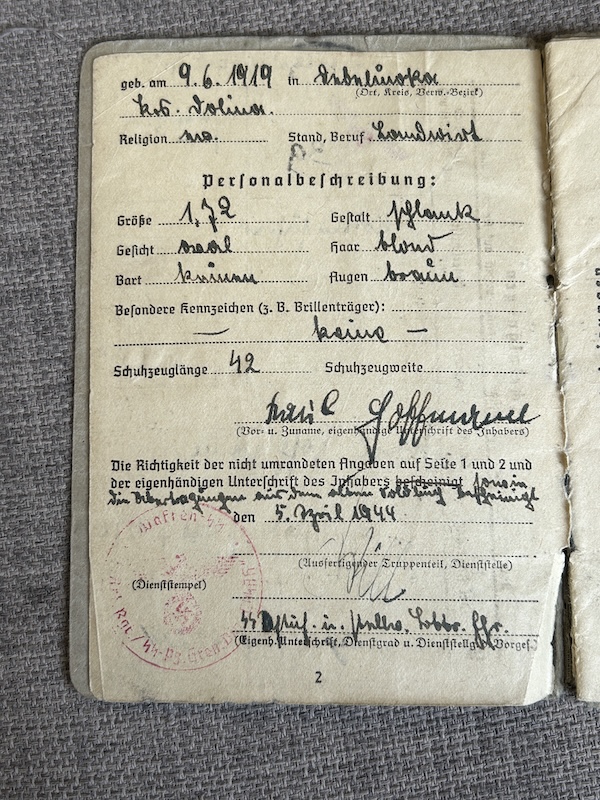 geb. am 9.6.1919 in
(Ort, Kreis, Verw.-Bezirk)
Krs. Dolina.
Religion ev. Stand, Beruf Landwirt
Personalbeschreibung:
Größe 1,72 Gestalt schlank
Gesicht oval Haar blond
Bart keinen Augen braun
Besondere Kennzeichen (z. B. Brillenträger):
— keine —
Schuhzeuglänge 42 Schuhzeugweite
Hoffmann
(Vor- u. Zuname, eigenhändige Unterschrift des Inhabers)
Die Richtigkeit der nicht umrandeten Angaben auf Seite 1 und 2 und
der eigenhändigen Unterschrift des Inhabers bescheinigt sowie
die Übertragungen aus dem alten Soldbuch bescheinigt
den 5. April 1944
(Ausfertigender Truppenteil, Dienststelle)
Waffen-SS
(Dienststempel)
SS-Pz.Gren.
(Eigenh. Unterschrift, Dienstgrad u. Dienststellg. d. Vorges.)
2